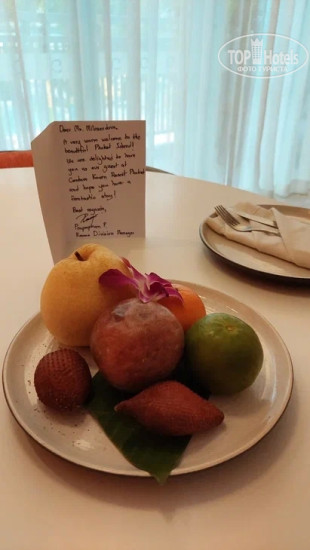 TOPHotels
ФОТО ТУРИСТА
Dear Ms. Miloserdova,
A very warm welcome to the
beautiful Phuket Island!
We are delighted to have
you as our guest at
Centara Karon Resort Phuket
and hope you have a
fantastic stay!
Best regards,
Rooms Division Manager